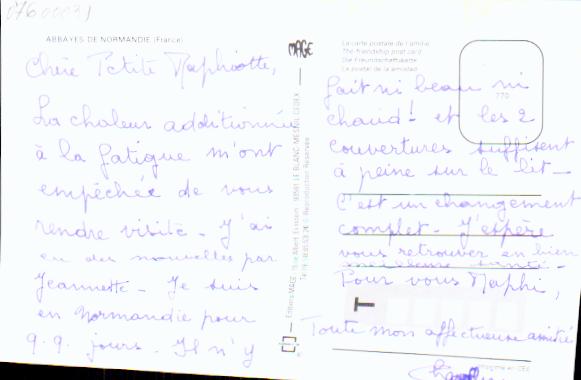 0760031
ABBAYES DE NORMANDIE (France)
Chère Petite Maphiotte,
La chaleur additionnée
à la fatigue m'ont
empêchée de vous
rendre visite - J'ai
eu des nouvelles par
Jeannette - Je suis
en Normandie pour
q.q. jours. Il n'y
MAGE
Editions MAGE
93591 LE BLANC MESNIL CEDEX
Reproduction Réservée
La carte postale de l'amitié
The friendship post card
Die Freundschaftskarte
La postal de la amistad
770
fait ni beau ni
chaud! et les 2
couvertures suffisent
à peine sur le lit -
C'est un changement
complet - J'espère
vous retrouver en bien
meilleure santé -
Pour vous Maphi,
T
Toute mon affectueuse amitié